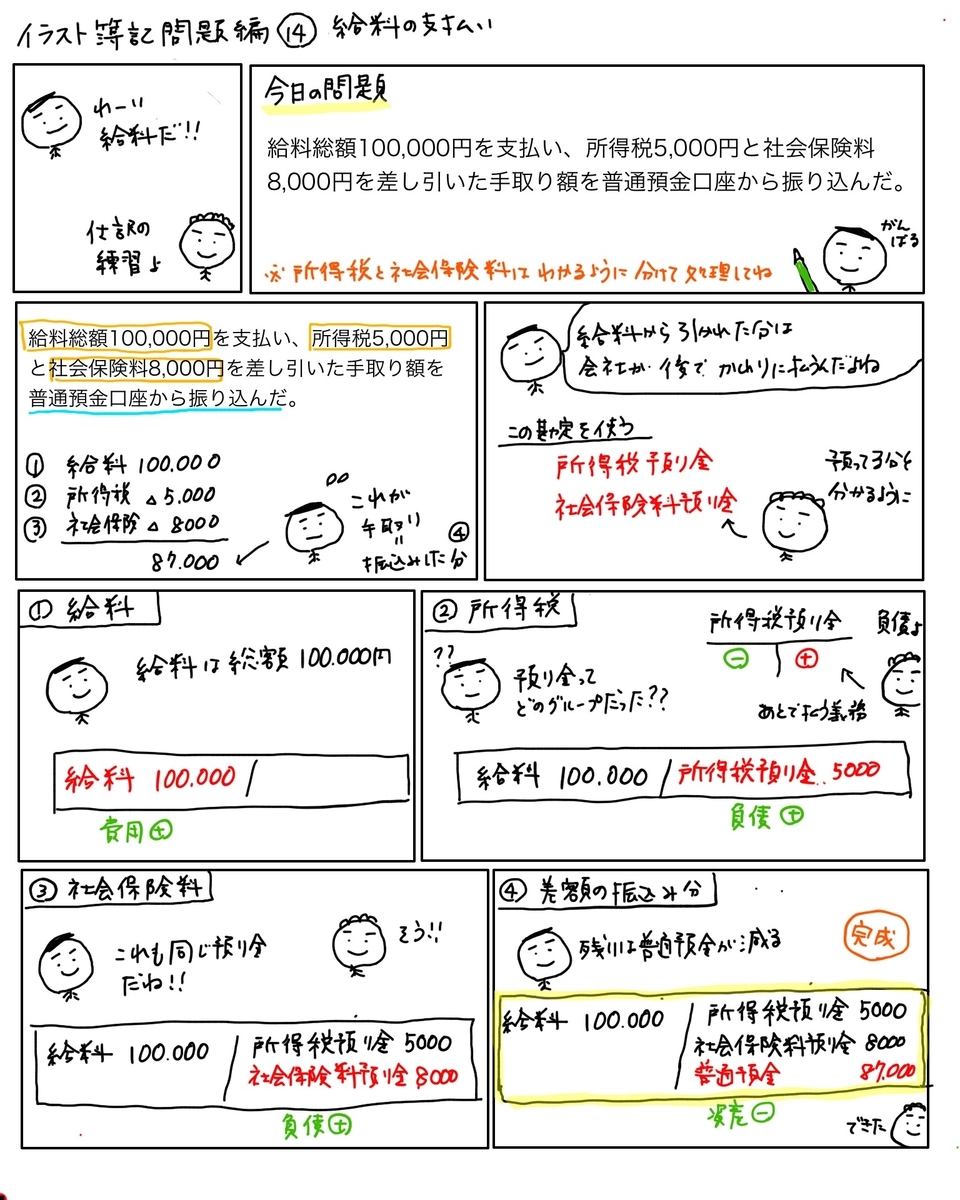 イラスト簿記問題編⑭ 給料の支払い
わーい
給料だ!!
仕訳の
練習よ
今日の問題
給料総額100,000円を支払い、所得税5,000円と社会保険料
8,000円を差し引いた手取り額を普通預金口座から振り込んだ。
※所得税と社会保険料はわかるように分けて処理してね
がん
ばる
給料総額100,000円を支払い、所得税5,000円
と社会保険料8,000円を差し引いた手取り額を
普通預金口座から振り込んだ。
① 給料 100.000
② 所得税 △5.000
③ 社会保険 △8000
87.000
これが
手取り
=
振込みした分
④
給料から引かれた分は
会社が後でかわりに払うんだよね
この勘定を使う
所得税預り金
社会保険料預り金
預ってる分と
分かるように
① 給料
給料は総額100.000円
給料 100.000 /
費用⊕
② 所得税
??
預り金って
どのグループだった??
所得税預り金
⊖ ⊕
負債よ
あとで払う義務
給料 100.000 / 所得税預り金 5000
負債⊕
③ 社会保険料
これも同じ預り金
だね!!
そう!!
給料 100.000 / 所得税預り金 5000
社会保険料預り金 8000
負債⊕
④ 差額の振込み分
残りは普通預金が減る
完成
給料 100.000 / 所得税預り金 5000
社会保険料預り金 8000
普通預金 87,000
資産⊖
できた